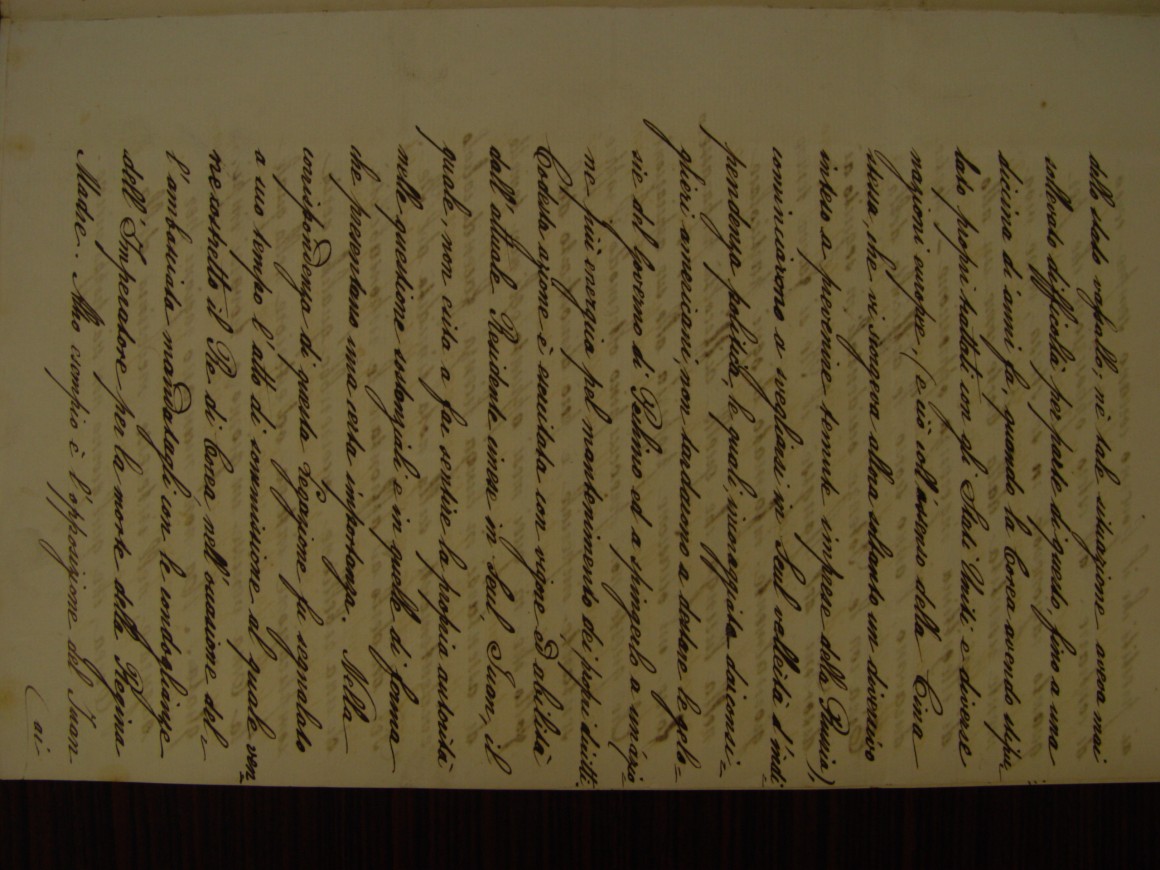 dello stato vassallo; nè tale situazione aveva mai
sollevato difficoltà per parte di questo, fino a una
diecina di anni fa, quando la Corea avendo stipu=
lato proprii trattati con gli Stati Uniti e diverse
nazioni europee, (e ciò coll'assenso della Cina
stessa, che vi scorgeva allora soltanto un diversivo
inteso a prevenire temute imprese della Russia),
cominciarono a svegliarsi in Seul velleità d'indi=
pendenza politica, le quali, incoraggiate da consi=
glieri americani, non tardarono a destare le gelo=
sie del Governo di Pekino ed a spingerlo a un'azio
ne più energica pel mantenimento dei propri diritti.
Codesta azione è esercitata con vigore ed abilità
dall'attuale Residente cinese in Seul, Iuan, il
quale, non esita a far sentire la propria autorità
nelle questione sostanziali e in quelle di forma
che presentano una certa importanza. Nella
corrispondenza di questa Legazione fu segnalato
a suo tempo l'atto di sommissione al quale ven
ne costretto il Re di Corea nell'occasione del=
l'ambasciata mandatagli con le condoglianze
dell'Imperatore per la morte della Regina
Madre. Altro esempio è l'opposizione del Iuan
(ai